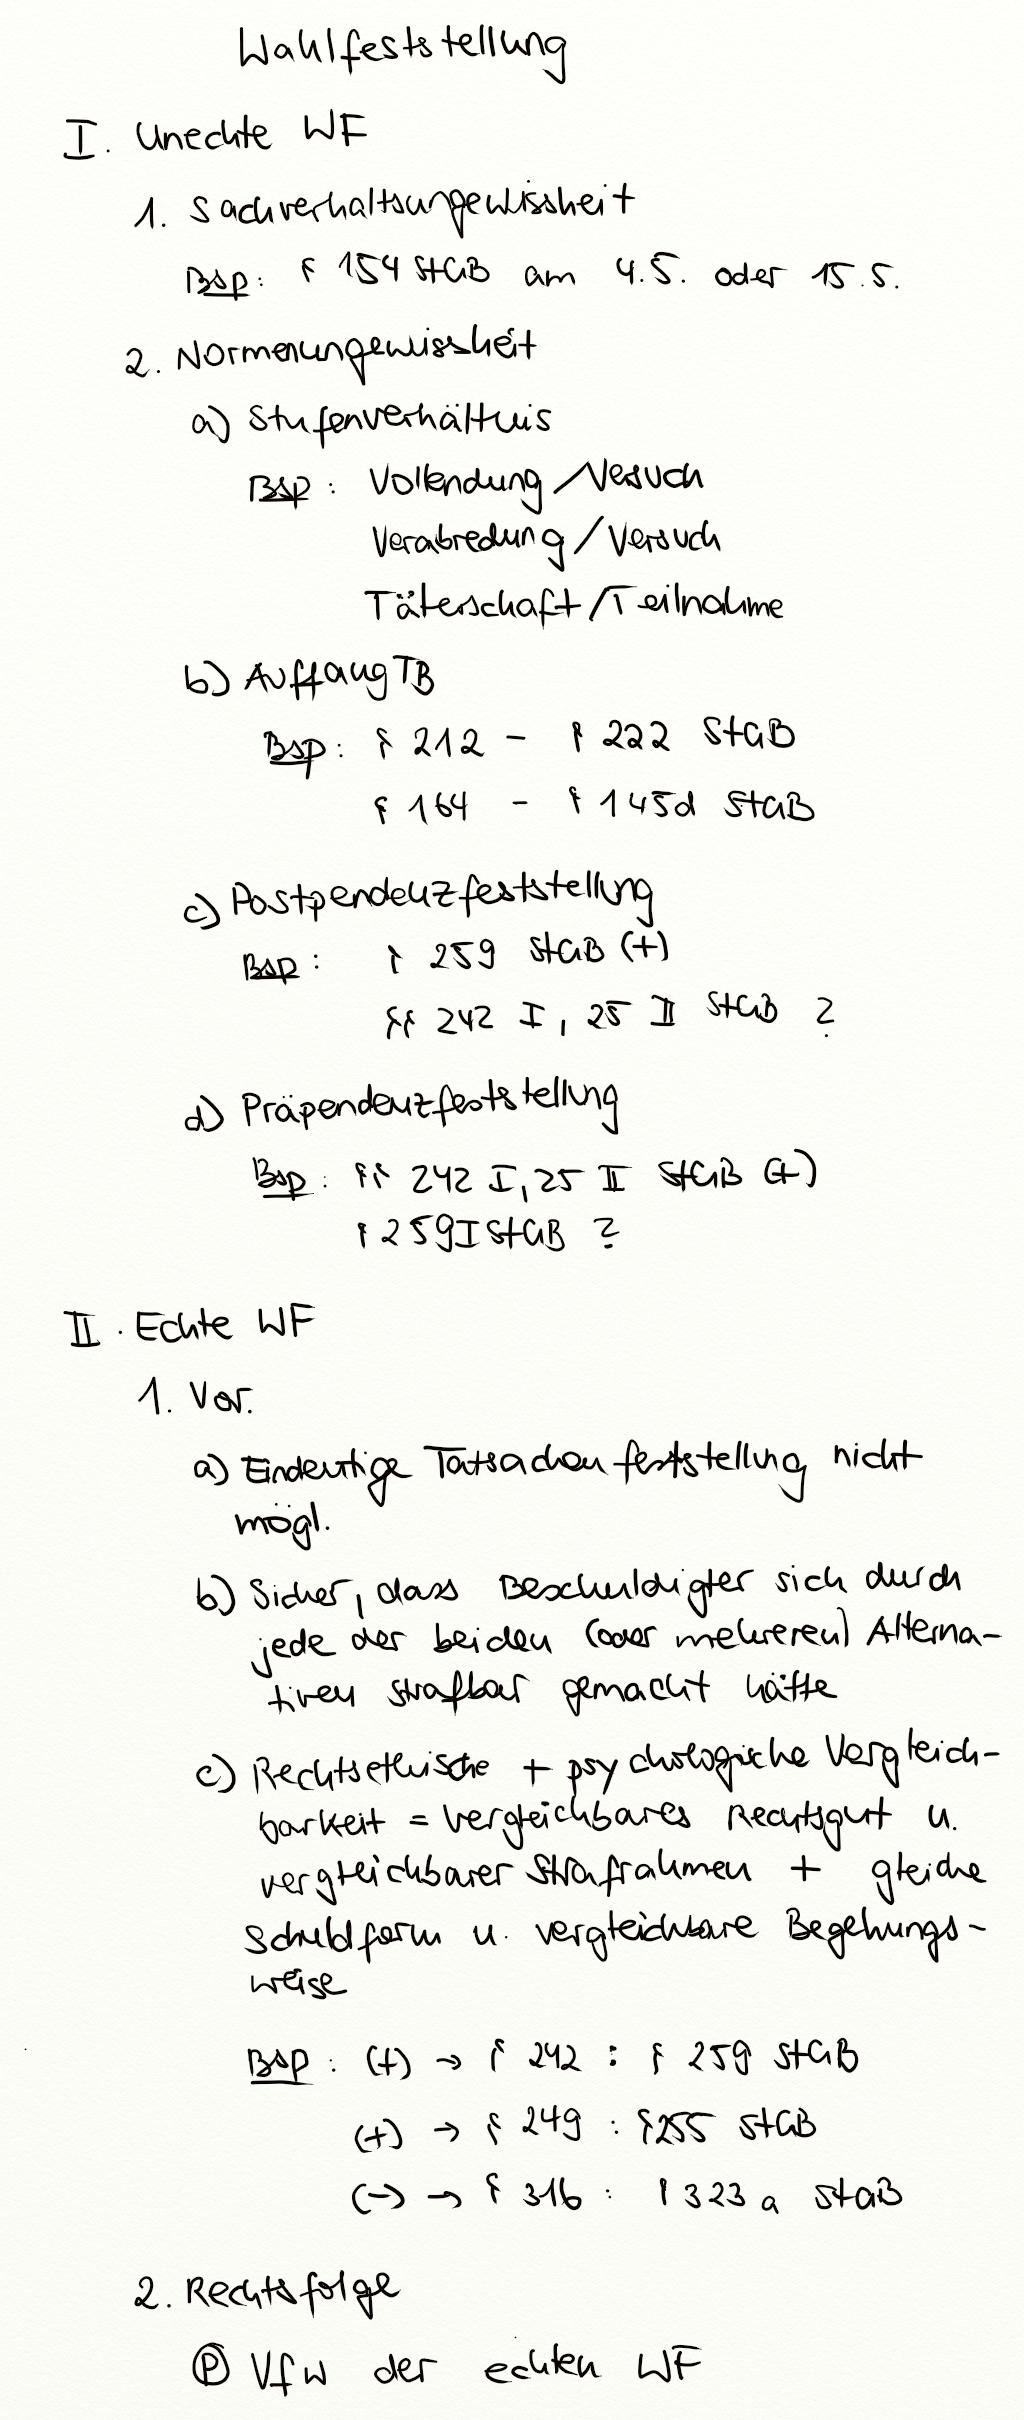 Wahlfeststellung
I. Unechte WF
1. Sachverhaltsungewissheit
Bsp: § 154 StGB am 4.5. oder 15.5.
2. Normenungewissheit
a) Stufenverhältnis
Bsp: Vollendung/Versuch
Verabredung/Versuch
Täterschaft/Teilnahme
b) AuffangTB
Bsp: § 212 - § 222 StGB
§ 164 - § 145d StGB
c) Postpendenzfeststellung
Bsp: § 259 StGB (+)
§§ 242 I, 25 II StGB ?
d) Präpendenzfeststellung
Bsp: §§ 242 I, 25 II StGB (+)
§ 259 I StGB ?
II. Echte WF
1. Vor.
a) Eindeutige Tatsachenfeststellung nicht
mögl.
b) Sicher, dass Beschuldigter sich durch
jede der beiden (oder mehreren) Alterna-
tiven strafbar gemacht hätte
c) Rechtsethische + psychologische Vergleich-
barkeit = vergleichbares Rechtsgut u.
vergleichbarer Strafrahmen + gleiche
Schuldform u. vergleichbare Begehungs-
weise
Bsp: (+) → § 242 : § 259 StGB
(+) → § 249 : § 255 StGB
(-) → § 316 : § 323 a StGB
2. Rechtsfolge
Ⓟ VfW der echten WF